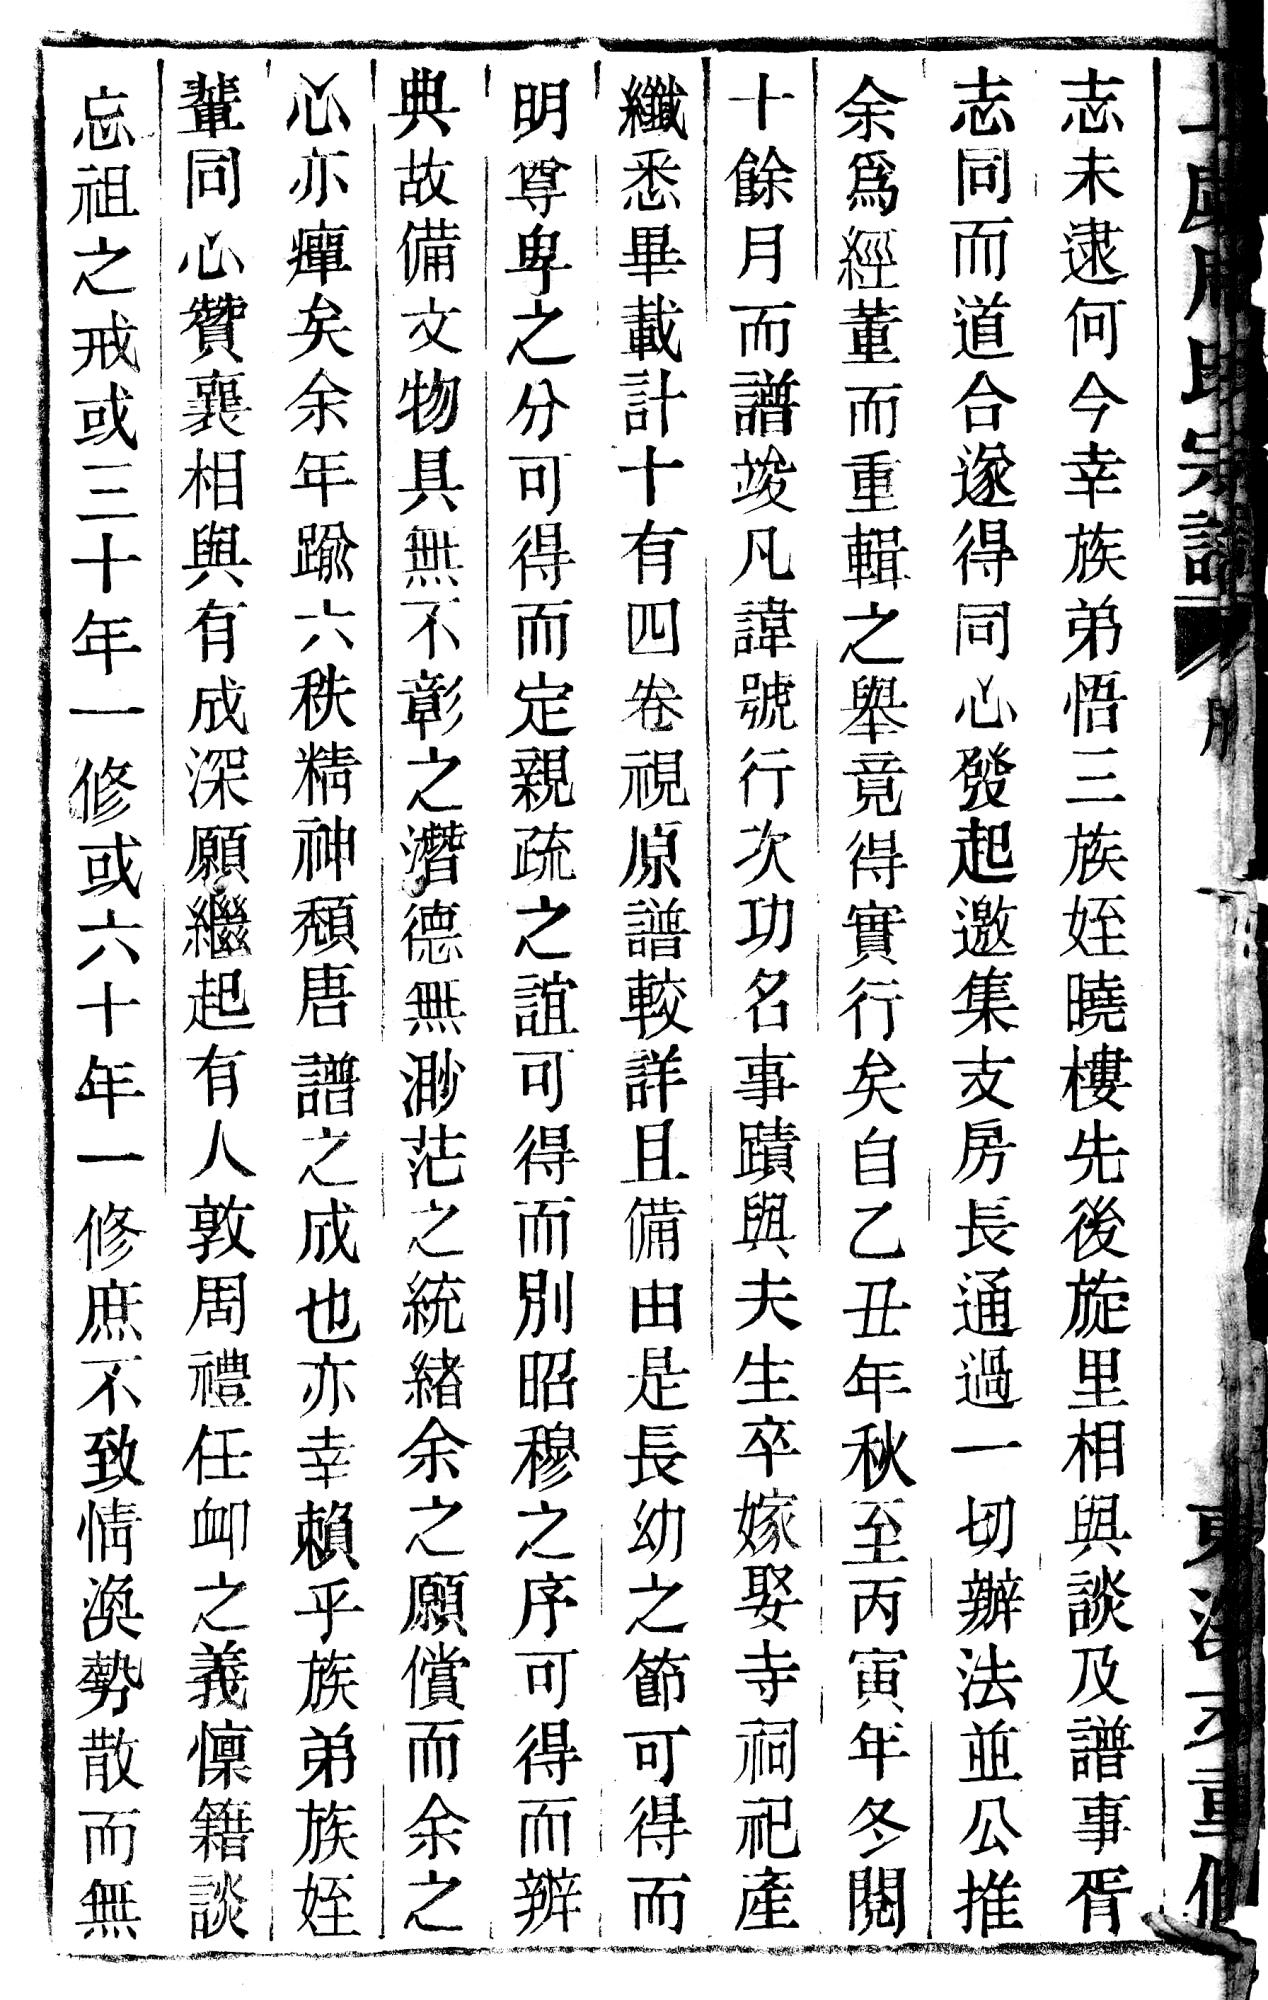 志未逮何今幸族弟悟三族姪曉樓先後旋里相與談及譜事胥
志同而道合遂得同心發起邀集支房長通過一切辦法並公推
余爲經董而重輯之舉竟得實行矣自乙丑年秋至丙寅年冬閱
十餘月而譜竣凡諱號行次功名事蹟與夫生卒嫁娶寺祠祀產
纖悉畢載計十有四卷視原譜較詳且備由是長幼之節可得而
明尊卑之分可得而定親疏之誼可得而別昭穆之序可得而辨
典故備文物具無不彰之潛德無渺茫之統緒余之願償而余之
心亦癉矣余年踰六秩精神頹唐譜之成也亦幸賴乎族弟族姪
輩同心贊襄相與有成深願繼起有人敦周禮任卹之義懍籍談
忘祖之戒或三十年一修或六十年一修庶不致情渙勢散而無
宗譜
重修